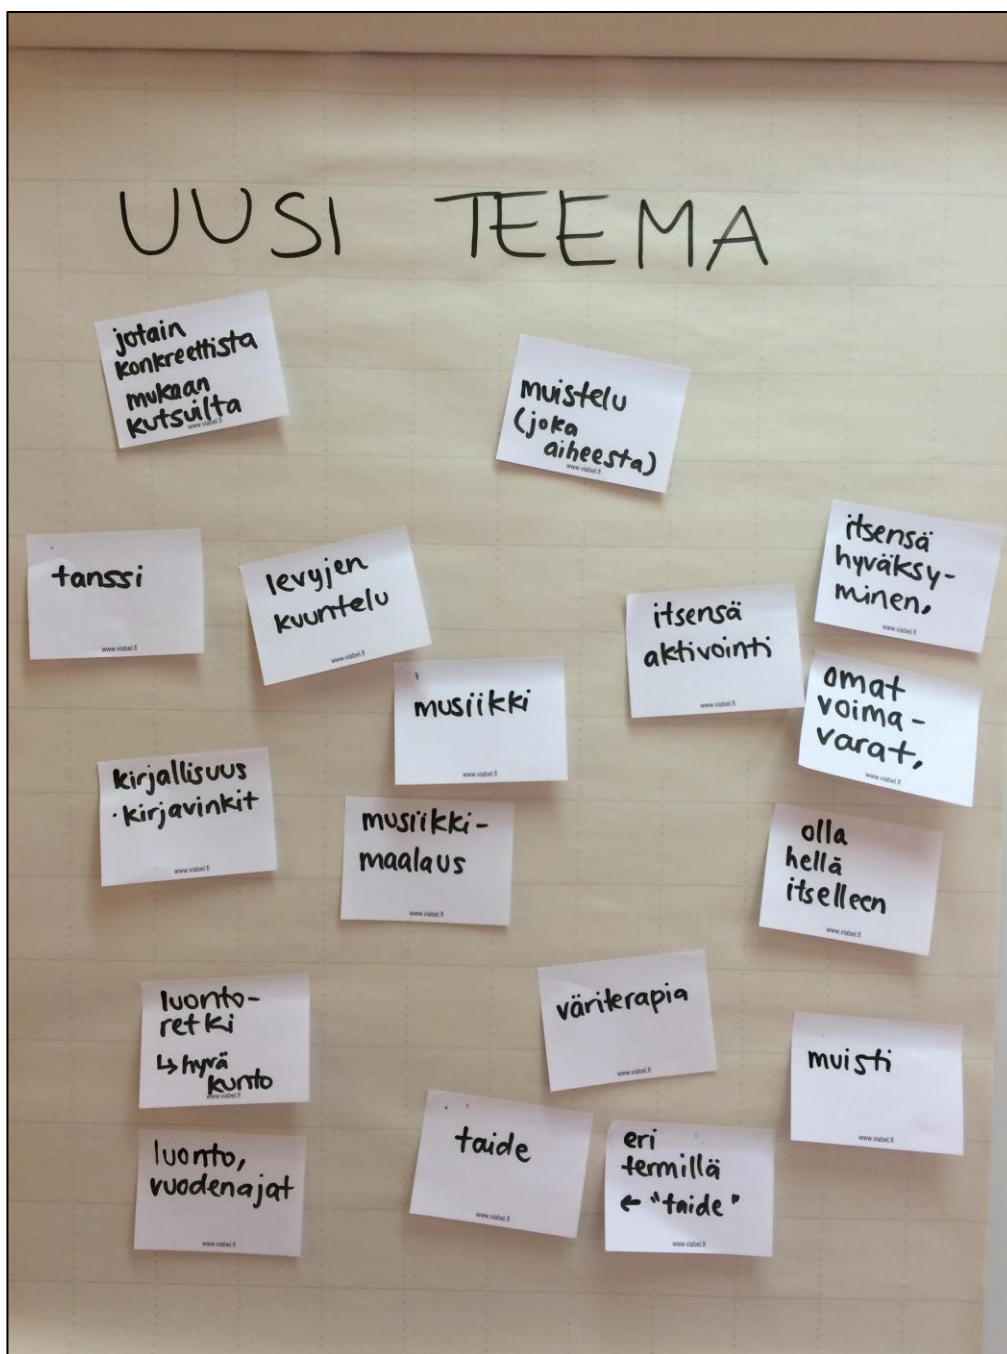 UUSI TEEMA
jotain
konkreettista
mukaan
kutsuilta
www.viabel.fi
muistelu
(joka
aiheesta)
www.viabel.fi
tanssi
www.viabel.fi
levyjen
kuuntelu
www.viabel.fi
itsensä
aktivointi
www.viabel.fi
itsensä
hyväksy-
minen,
www.viabel.fi
musiikki
www.viabel.fi
omat
voima-
varat,
www.viabel.fi
kirjallisuus
· kirjavinkit
www.viabel.fi
musiikki-
maalaus
www.viabel.fi
olla
hellä
itselleen
www.viabel.fi
luonto-
retki
↳ hyvä
kunto
www.viabel.fi
väriterapia
www.viabel.fi
muisti
www.viabel.fi
luonto,
vuodenajat
www.viabel.fi
taide
www.viabel.fi
eri
termillä
← "taide"
www.viabel.fi